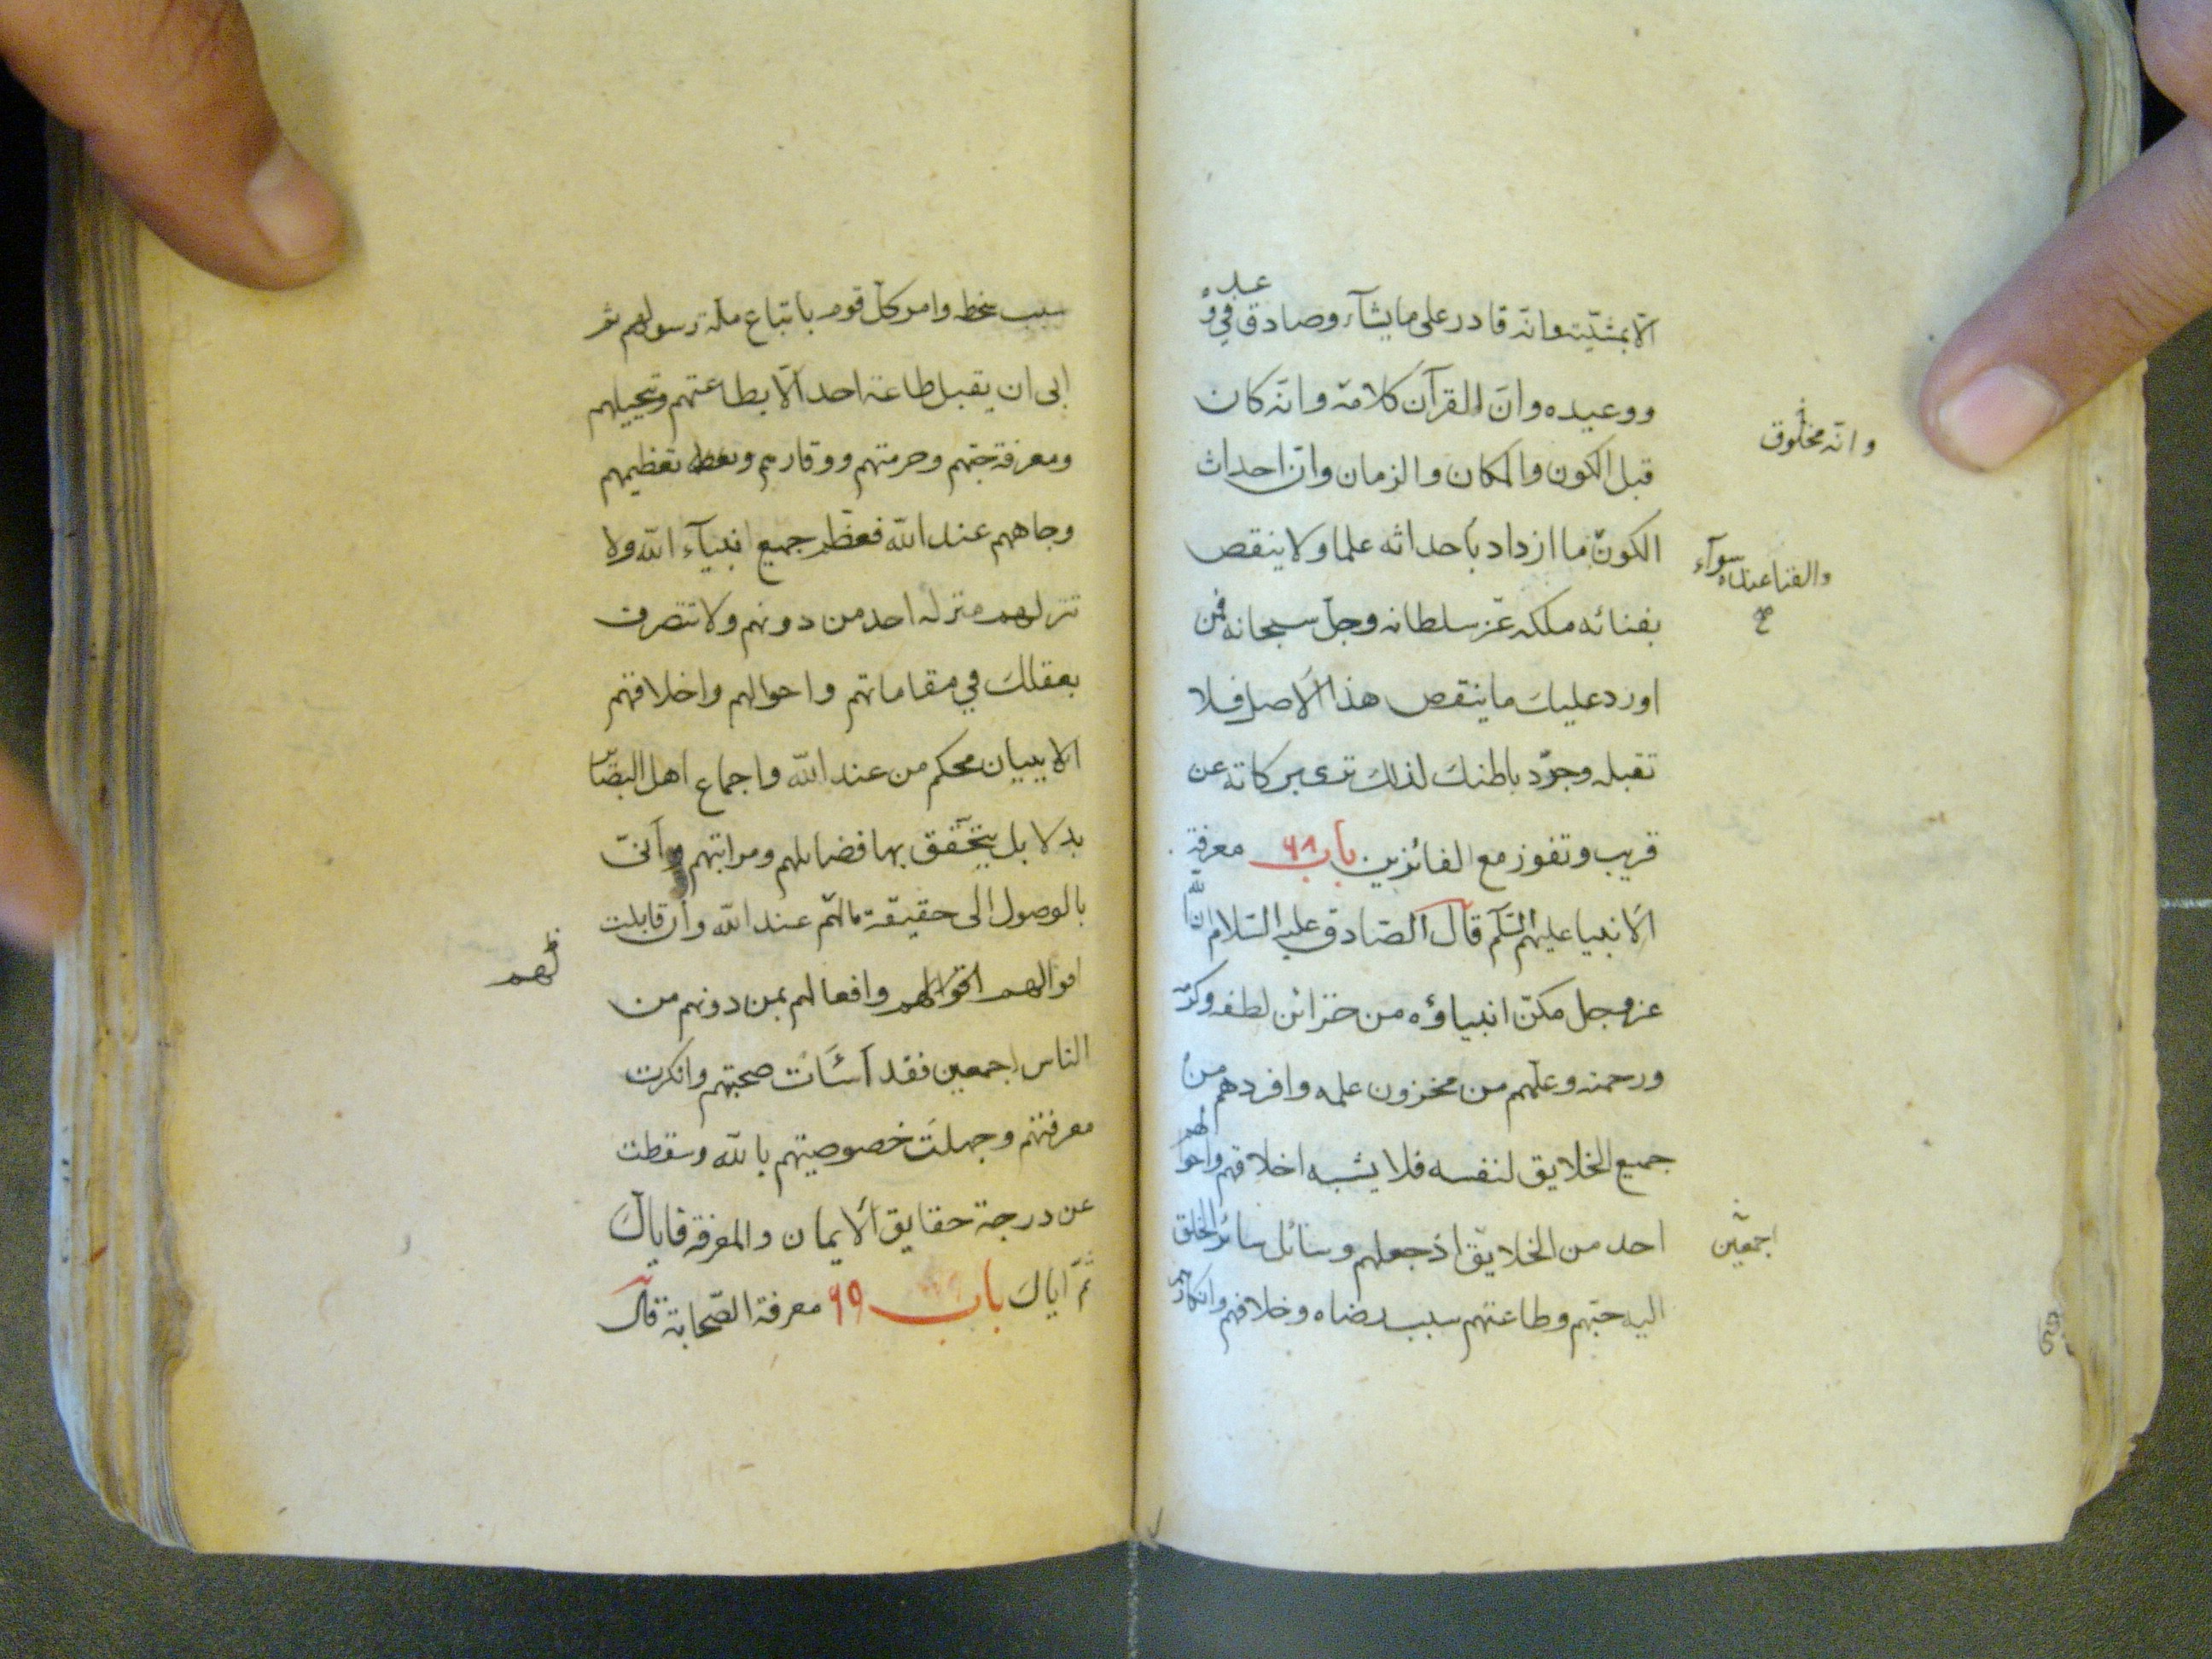 الّا بمشيّته وانّه قادر على ما يشآء وصادق في وعده
ووعيده وانّ القرآن كلامه وانّه كان
وانّه مخلوق
قبل الكون والمكان والزمان وانّ احداث
الكون ما ازداد باحداثه علما ولا ينقص
والفنا عنده سوآء
صح
بفنائه ملكه عزّ سلطانه وجلّ سبحانه فمن
اورد عليك ما ينقص هذا الاصل فلا
تقبله وجرّد باطنك لذلك ترى بركاته عن
قريب وتفوز مع الفائزين باب ٦٨ معرفة
الانبيا عليهم السّلم قال الصّادق عليه السّلام انّ الله
عز وجل مكّن انبياؤه من خزائن لطفه وكرمه
ورحمته وعلّمهم من مخزون علمه وافردهم من
جميع الخلايق لنفسه فلا يشبه اخلاقهم واحوالهم
احد من الخلايق اذ جعلهم وسائل سائر الخلق
اجمعين
اليه حبّهم وطاعتهم سبب رضاه وخلافهم وانكارهم
سبب سخطه وامر كلّ قوم باتباع ملّة رسولهم ثم
ابى ان يقبل طاعة احد الّا بطاعتهم وتبجيلهم
ومعرفة حبّهم وحرمتهم ووقارهم وتعظيمهم
وجاههم عند الله فعظّم جميع انبيآء الله ولا
تنزلهم منزلة احد من دونهم ولا تتصرف
بعقلك في مقاماتهم واحوالهم واخلاقهم
الا ببيان محكم من عند الله واجماع اهل البصائر
بدلايل يتحقّق بها فضايلهم ومراتبهم وانّى
بالوصول الى حقيقة مالهم عند الله وان قابلت
لهم
اقوالهم وافعالهم بمن دونهم من
الناس اجمعين فقد اسئات صحبتهم وانكرت
معرفتهم وجهلت خصوصيتهم بالله وسقطت
عن درجة حقايق الايمان والمعرفة فاياك
ثمّ اياك باب ٦٩ معرفة الصّحابة قال